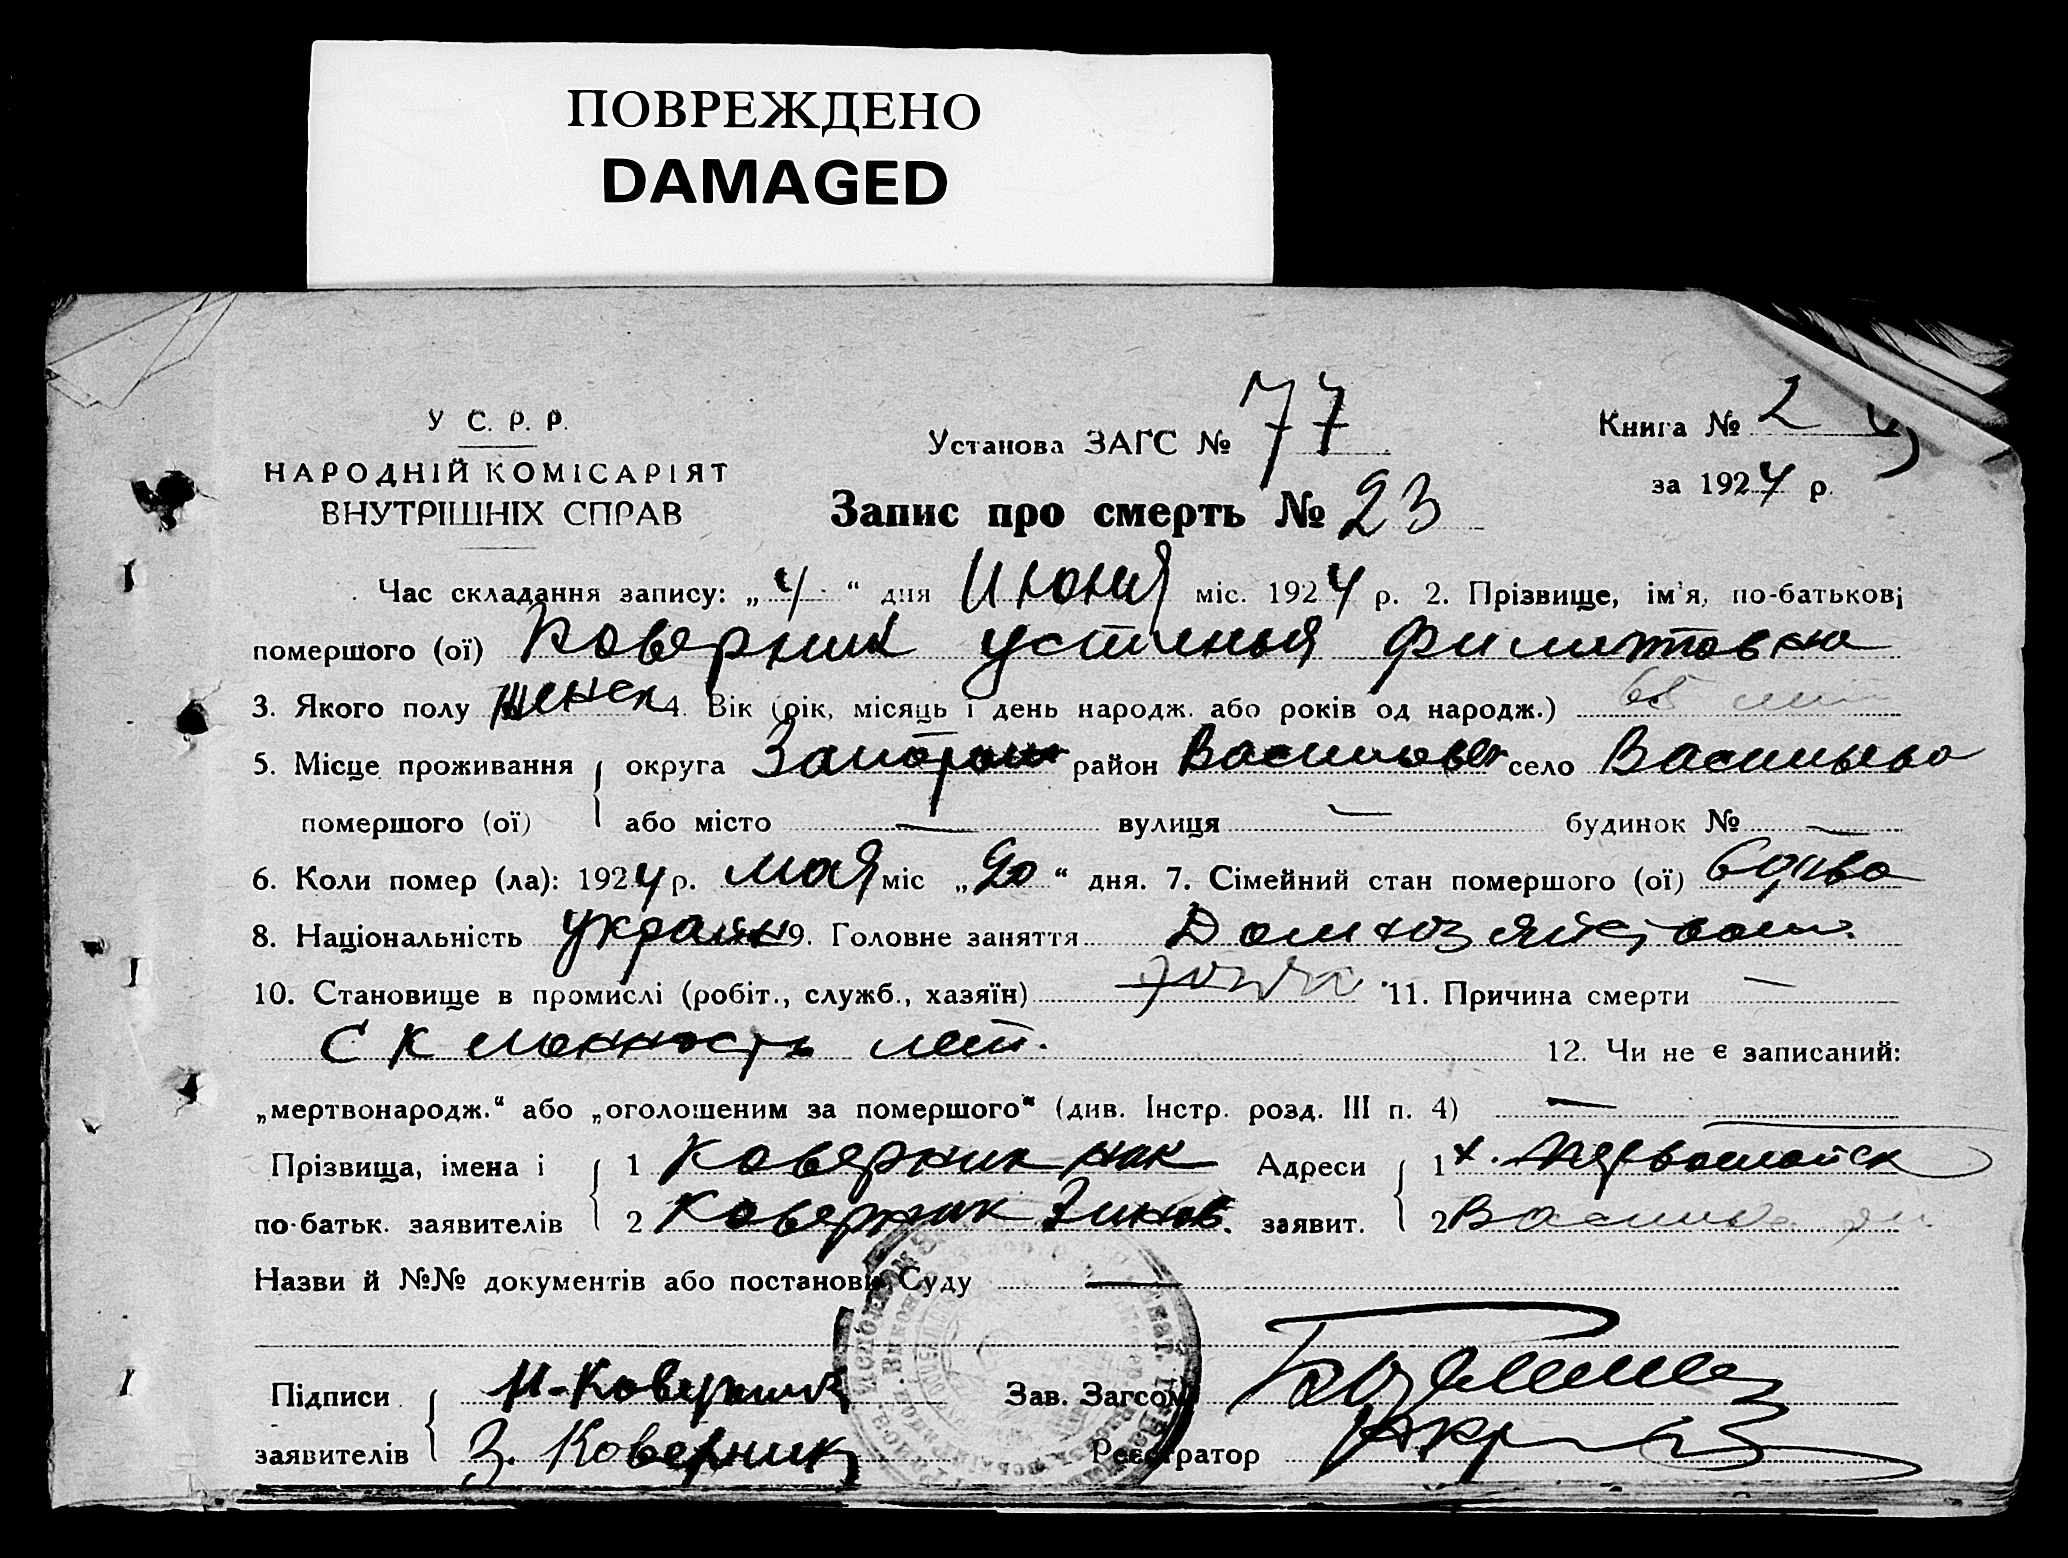 ПОВРЕЖДЕНО
DAMAGED
У С. Р. Р.
НАРОДНІЙ КОМІСАРІЯТ
ВНУТРІШНІХ СПРАВ
Установа ЗАГС № 77
Книга № 2
за 1924 р.
Запис про смерть № 23
Час складання запису: „4“ дня Июня міс. 1924 р. 2. Прізвище, ім'я, по-батькові
помершого (ої) Коверник Устинья Филиповна
3. Якого полу женск 4. Вік (рік, місяць і день народж. або років од народж.) 65 лет
5. Місце проживання округа Запорож район Васильевск село Васильево
помершого (ої) або місто — вулиця — будинок № —
6. Коли помер (ла): 1924 р. мая міс „20“ дня. 7. Сімейний стан помершого (ої) вдова
8. Національність украин 9. Головне заняття Дом хозяйством
10. Становище в промислі (робіт., служб., хазяїн) 11. Причина смерти —
С К лонность лет.
12. Чи не є записаний:
„мертвонародж.“ або „оголошеним за помершого“ (див. Інстр. розд. III п. 4) —
Прізвища, імена і 1 Коверник Ник Адреси 1 х. Первомайск
по-батьк. заявителів 2 Коверник Зинов. заявит. 2 Васильево
Назви й №№ документів або постанови Суду —
Підписи Н. Коверник Зав. Загсом
заявителів З. Коверник Реєстратор